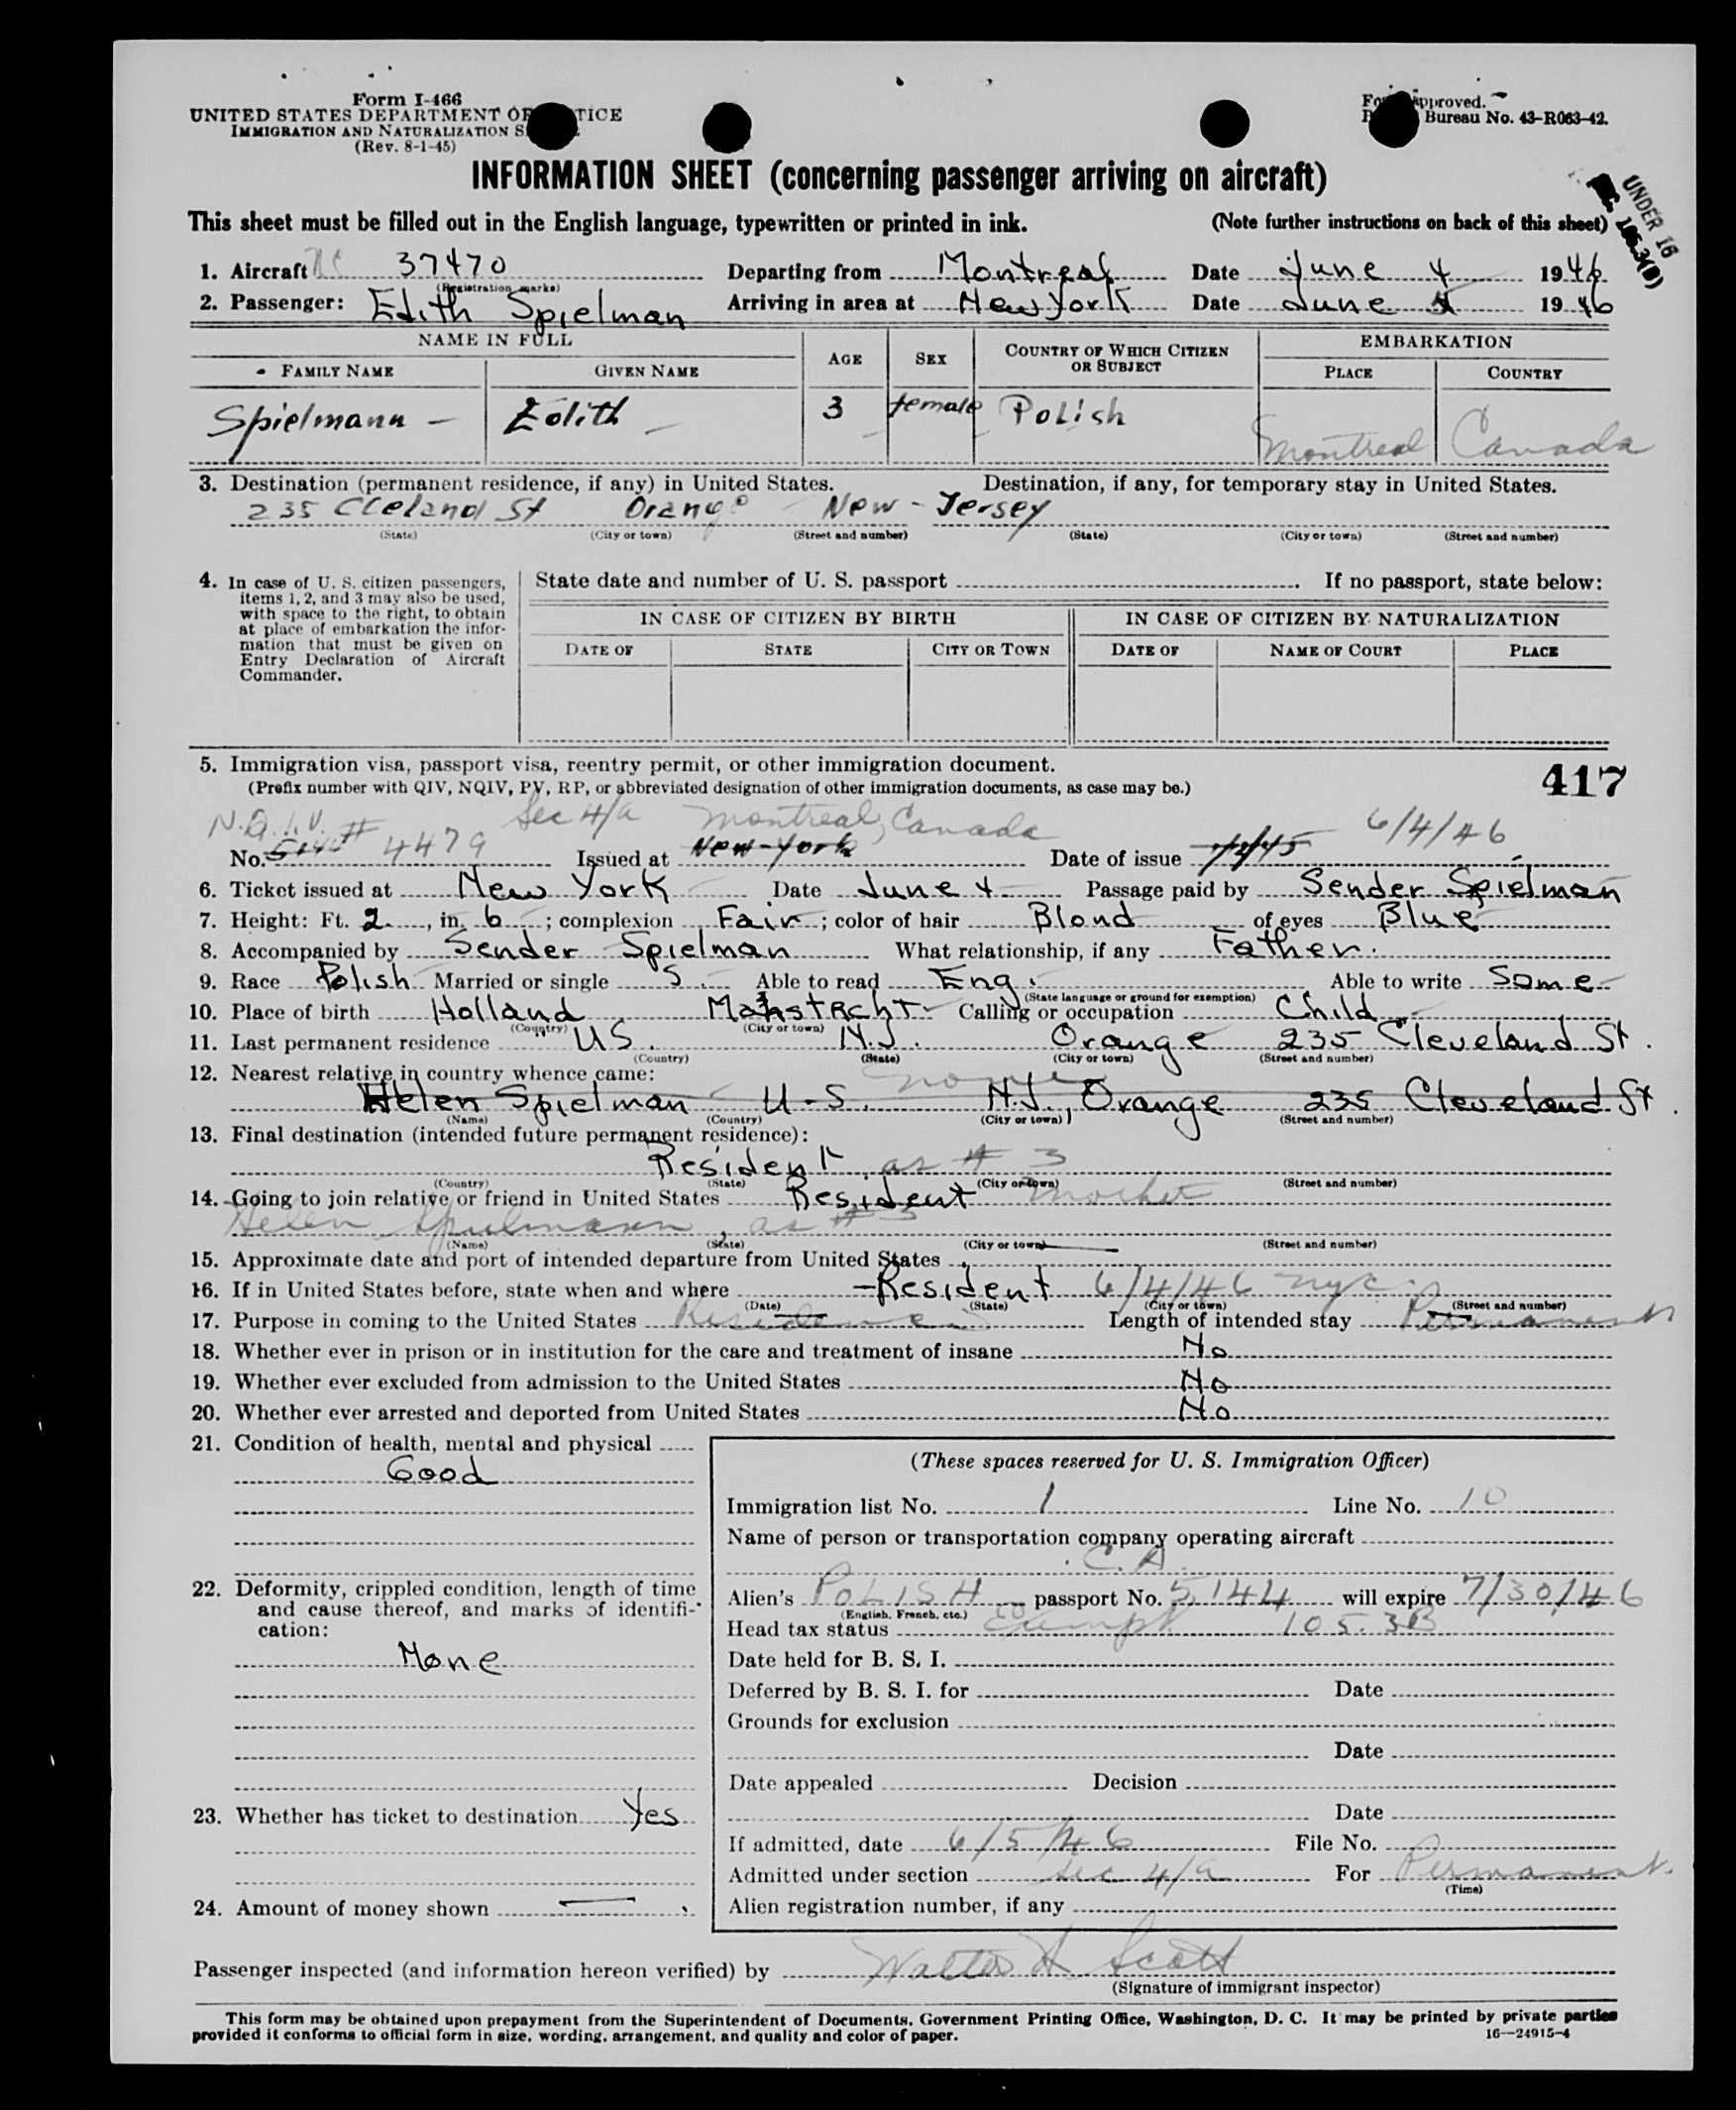 Form I-466
UNITED STATES DEPARTMENT OF TICE
IMMIGRATION AND NATURALIZATION S
(Rev. 8-1-45)
Fo pproved.
B Bureau No. 43-R063-42.
INFORMATION SHEET (concerning passenger arriving on aircraft)
UNDER 16
105.3(B)
This sheet must be filled out in the English language, typewritten or printed in ink. (Note further instructions on back of this sheet)
1. Aircraft NC 37470 Departing from Montreal Date June 4 1946
(Registration marks)
2. Passenger: Edith Spielman Arriving in area at New York Date June 1946
NAME IN FULL AGE SEX COUNTRY OF WHICH CITIZEN OR SUBJECT EMBARKATION
FAMILY NAME GIVEN NAME PLACE COUNTRY
Spielmann - Edith - 3 female Polish Montreal Canada
3. Destination (permanent residence, if any) in United States. Destination, if any, for temporary stay in United States.
235 Cleland St Orange New-Jersey
(State) (City or town) (Street and number) (State) (City or town) (Street and number)
4. In case of U. S. citizen passengers, items 1, 2, and 3 may also be used, with space to the right, to obtain at place of embarkation the information that must be given on Entry Declaration of Aircraft Commander.
State date and number of U. S. passport . If no passport, state below:
IN CASE OF CITIZEN BY BIRTH IN CASE OF CITIZEN BY NATURALIZATION
DATE OF STATE CITY OR TOWN DATE OF NAME OF COURT PLACE
5. Immigration visa, passport visa, reentry permit, or other immigration document.
417
(Prefix number with QIV, NQIV, PV, RP, or abbreviated designation of other immigration documents, as case may be.)
N.Q.I.V. # Sec 4/a Montreal, Canada 6/4/46
No. 4479 Issued at New-York Date of issue
6. Ticket issued at New York Date June 4 Passage paid by Sender Spielman
7. Height: Ft. 2, in. 6; complexion Fair; color of hair Blond of eyes Blue
8. Accompanied by Sender Spielman What relationship, if any Father.
9. Race Polish Married or single S. Able to read Eng. Able to write Some
(State language or ground for exemption)
10. Place of birth Holland Calling or occupation Child
(Country) (City or town)
11. Last permanent residence US. N.J. Orange 235 Cleveland St.
(Country) (State) (City or town) (Street and number)
12. Nearest relative in country whence came: none
Helen Spielman U-S. N.J., Orange 235 Cleveland St.
(Name) (Country) (City or town) (Street and number)
13. Final destination (intended future permanent residence):
Resident as # 3
(Country) (State) (City or town) (Street and number)
14. Going to join relative or friend in United States Resident mother
Helen Spielmann, as # 3
(Name) (State) (City or town) (Street and number)
15. Approximate date and port of intended departure from United States
16. If in United States before, state when and where -Resident 6/4/46 nyc.
(Date) (State) (City or town) (Street and number)
17. Purpose in coming to the United States Residence Length of intended stay Permanent
18. Whether ever in prison or in institution for the care and treatment of insane No
19. Whether ever excluded from admission to the United States No
20. Whether ever arrested and deported from United States No
21. Condition of health, mental and physical
Good
22. Deformity, crippled condition, length of time and cause thereof, and marks of identification:
None
23. Whether has ticket to destination Yes
24. Amount of money shown —
(These spaces reserved for U. S. Immigration Officer)
Immigration list No. 1 Line No. 10
Name of person or transportation company operating aircraft
C. A.
Alien's POLISH passport No. 5144 will expire 7/30/46
(English, French, etc.)
Head tax status Exempt 105.3B
Date held for B. S. I.
Deferred by B. S. I. for Date
Grounds for exclusion
Date
Date appealed Decision
Date
If admitted, date 6/5/46 File No.
Admitted under section Sec 4/a For Permanent
(Time)
Alien registration number, if any
Passenger inspected (and information hereon verified) by Walter Scott
(Signature of immigrant inspector)
This form may be obtained upon prepayment from the Superintendent of Documents, Government Printing Office, Washington, D. C. It may be printed by private parties
provided it conforms to official form in size, wording, arrangement, and quality and color of paper. 16—24915-4